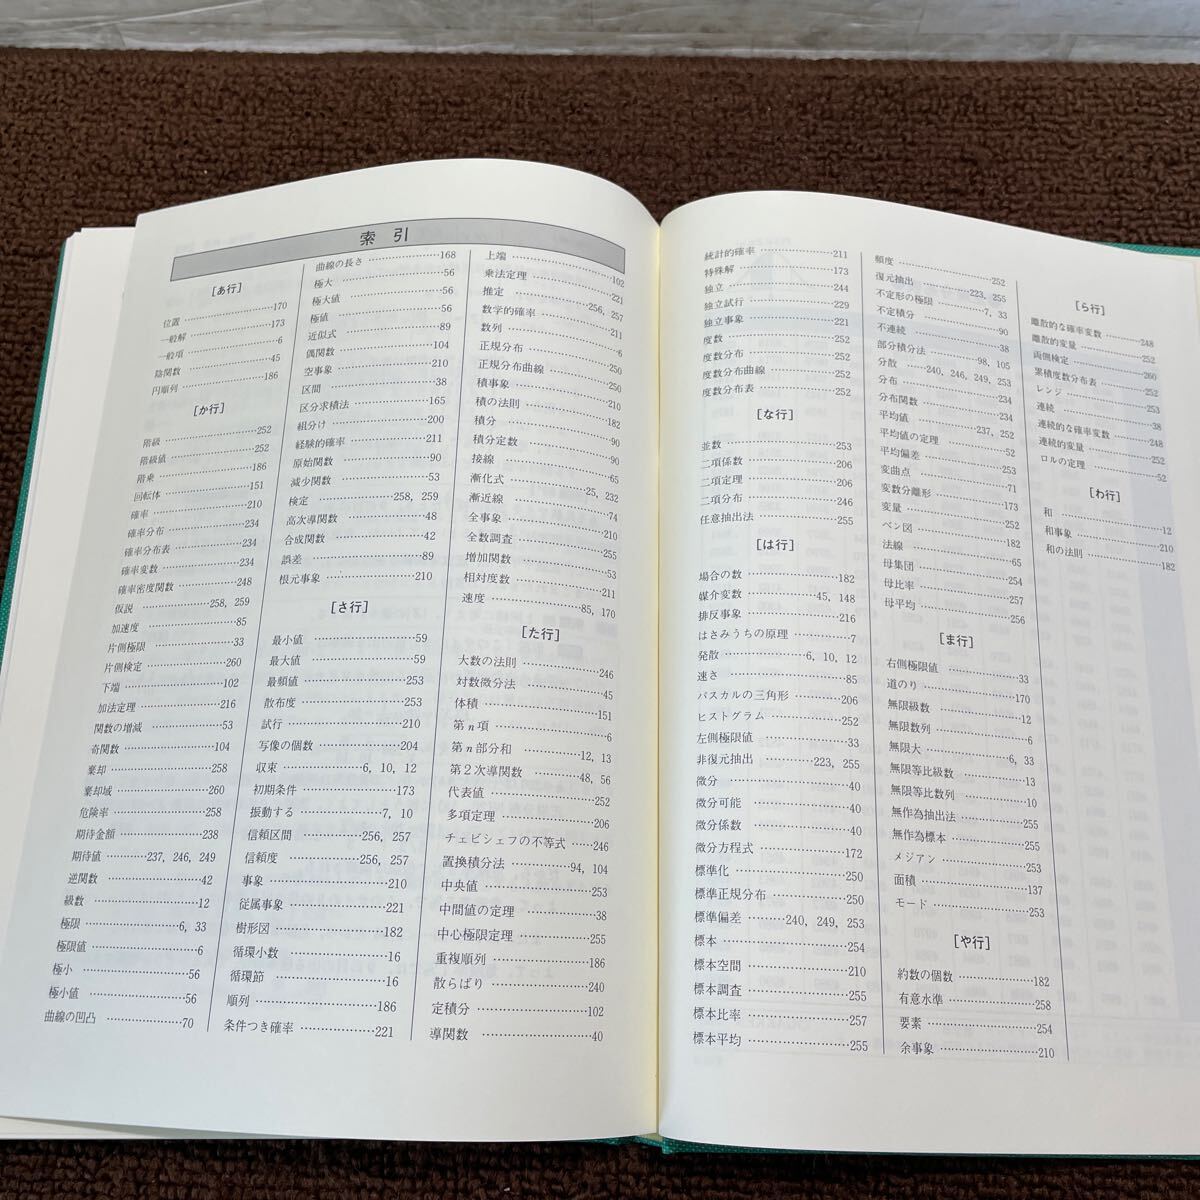 索 引
[あ行]
位置 170
一般解 173
一般項 6
陰関数 45
円順列 186
[か行]
階級 252
階級値 252
階乗 186
回転体 151
確率 210
確率分布 234
確率分布表 234
確率変数 234
確率密度関数 248
仮説 258, 259
加速度 85
片側極限 33
片側検定 260
下端 102
加法定理 216
関数の増減 53
奇関数 104
棄却 258
棄却域 260
危険率 258
期待金額 238
期待値 237, 246, 249
逆関数 42
級数 12
極限 6, 33
極限値 6
極小 56
極小値 56
曲線の凹凸 70
曲線の長さ 168
極大 56
極大値 56
極値 56
近似式 89
偶関数 104
空事象 210
区間 38
区分求積法 165
組分け 200
経験的確率 211
原始関数 90
減少関数 53
検定 258, 259
高次導関数 48
合成関数 42
誤差 89
根元事象 210
[さ行]
最小値 59
最大値 59
最頻値 253
散布度 253
試行 210
写像の個数 204
収束 6, 10, 12
初期条件 173
振動する 7, 10
信頼区間 256, 257
信頼度 256, 257
事象 210
従属事象 221
樹形図 182
循環小数 16
循環節 16
順列 186
条件つき確率 221
上端 102
乗法定理 221
推定 256, 257
数学的確率 211
数列 6
正規分布 250
正規分布曲線 250
積事象 210
積の法則 182
積分 90
積分定数 90
接線 65
漸化式 25, 232
漸近線 74
全事象 210
全数調査 255
増加関数 53
相対度数 211
速度 85, 170
[た行]
大数の法則 246
対数微分法 45
体積 151
第n項 6
第n部分和 12, 13
第2次導関数 48, 56
代表値 252
多項定理 206
チェビシェフの不等式 246
置換積分法 94, 104
中央値 253
中間値の定理 38
中心極限定理 255
重複順列 186
散らばり 240
定積分 102
導関数 40
統計的確率 211
特殊解 173
独立 244
独立試行 229
独立事象 221
度数 252
度数分布 252
度数分布曲線 252
度数分布表 252
[な行]
並数 253
二項係数 206
二項定理 206
二項分布 246
任意抽出法 255
[は行]
場合の数 182
媒介変数 45, 148
排反事象 216
はさみうちの原理 7
発散 6, 10, 12
速さ 85
パスカルの三角形 206
ヒストグラム 252
左側極限値 33
非復元抽出 223, 255
微分 40
微分可能 40
微分係数 40
微分方程式 172
標準化 250
標準正規分布 250
標準偏差 240, 249, 253
標本 254
標本空間 210
標本調査 255
標本比率 257
標本平均 255
頻度 252
復元抽出 223, 255
不定形の極限 7, 33
不定積分 90
不連続 38
部分積分法 98, 105
分散 240, 246, 249, 253
分布 234
分布関数 234
平均値 237, 252
平均値の定理 52
平均偏差 253
変曲点 71
変数分離形 173
変量 252
ベン図 182
法線 65
母集団 254
母比率 257
母平均 256
[ま行]
右側極限値 33
道のり 170
無限級数 12
無限数列 6
無限大 6, 33
無限等比級数 13
無限等比数列 10
無作為抽出法 255
無作為標本 255
メジアン 253
面積 137
モード 253
[や行]
約数の個数 182
有意水準 258
要素 254
余事象 210
[ら行]
離散的な確率変数 248
離散的変量 252
両側検定 260
累積度数分布表 252
レンジ 253
連続 38
連続的な確率変数 248
連続的変量 252
ロルの定理 52
[わ行]
和 12
和事象 210
和の法則 182